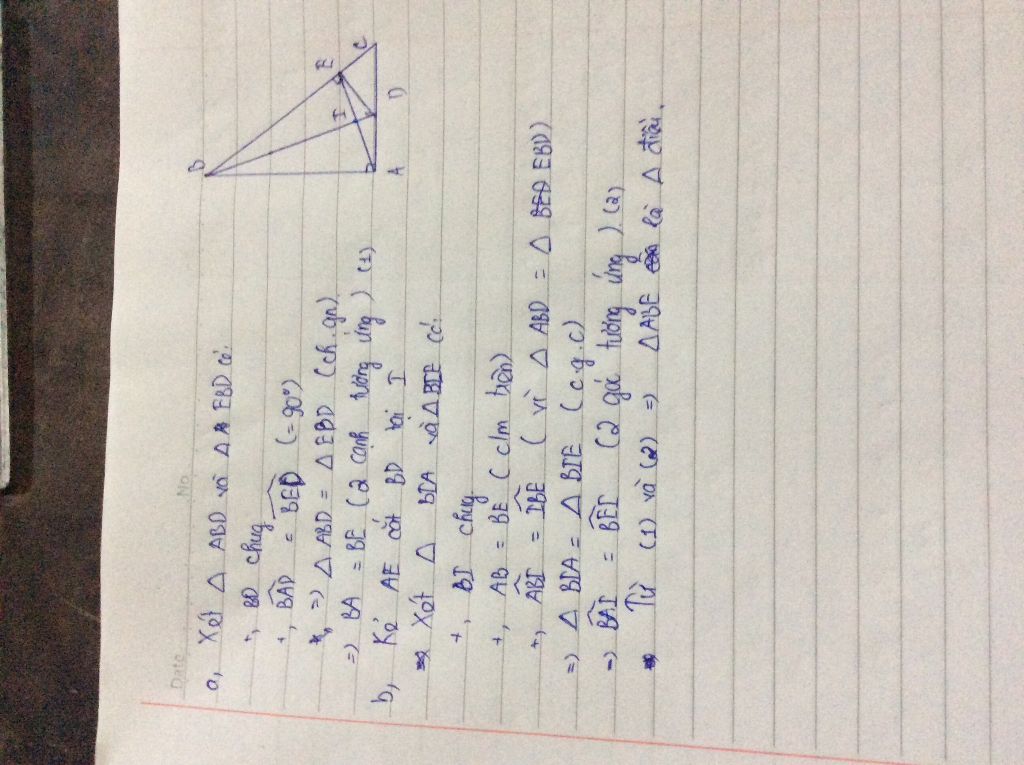 Date
No
B
I
E
C
A
D
a, Xét △ ABD và △ EBD có:
+, BD chung
+, BAD = BED (= 90°)
=) △ ABD = △ EBD (ch.gn)
=) BA = BE (2 cạnh tương ứng) (1)
b, Kẻ AE cắt BD tại I
Xét △ BIA và △ BIE có:
+, BI chung
+, AB = BE (c/m trên)
+, ABI = IBE (vì △ ABD = △ BED EBD)
=) △ BIA = △ BIE (c.g.c)
=) BAI = BEI (2 góc tương ứng) (2)
Từ (1) và (2) =) △ABE là △ đều.